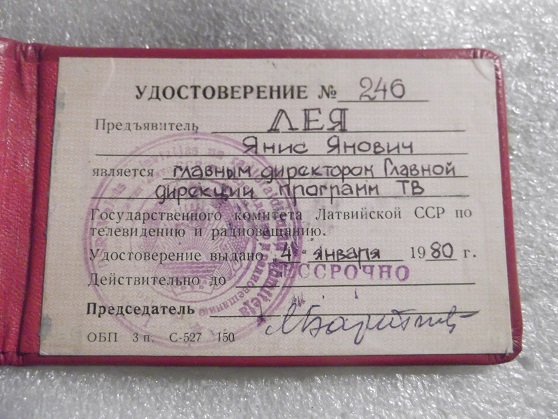 УДОСТОВЕРЕНИЕ № 246
Предъявитель ЛЕЯ
Янис Янович
является главным директором Главной
дирекции программ ТВ
Государственного комитета Латвийской ССР по
телевидению и радиовещанию.
Удостоверение выдано 4 января 1980 г.
Действительно до БЕССРОЧНО
Председатель
ОБП 3 п. С-527 150